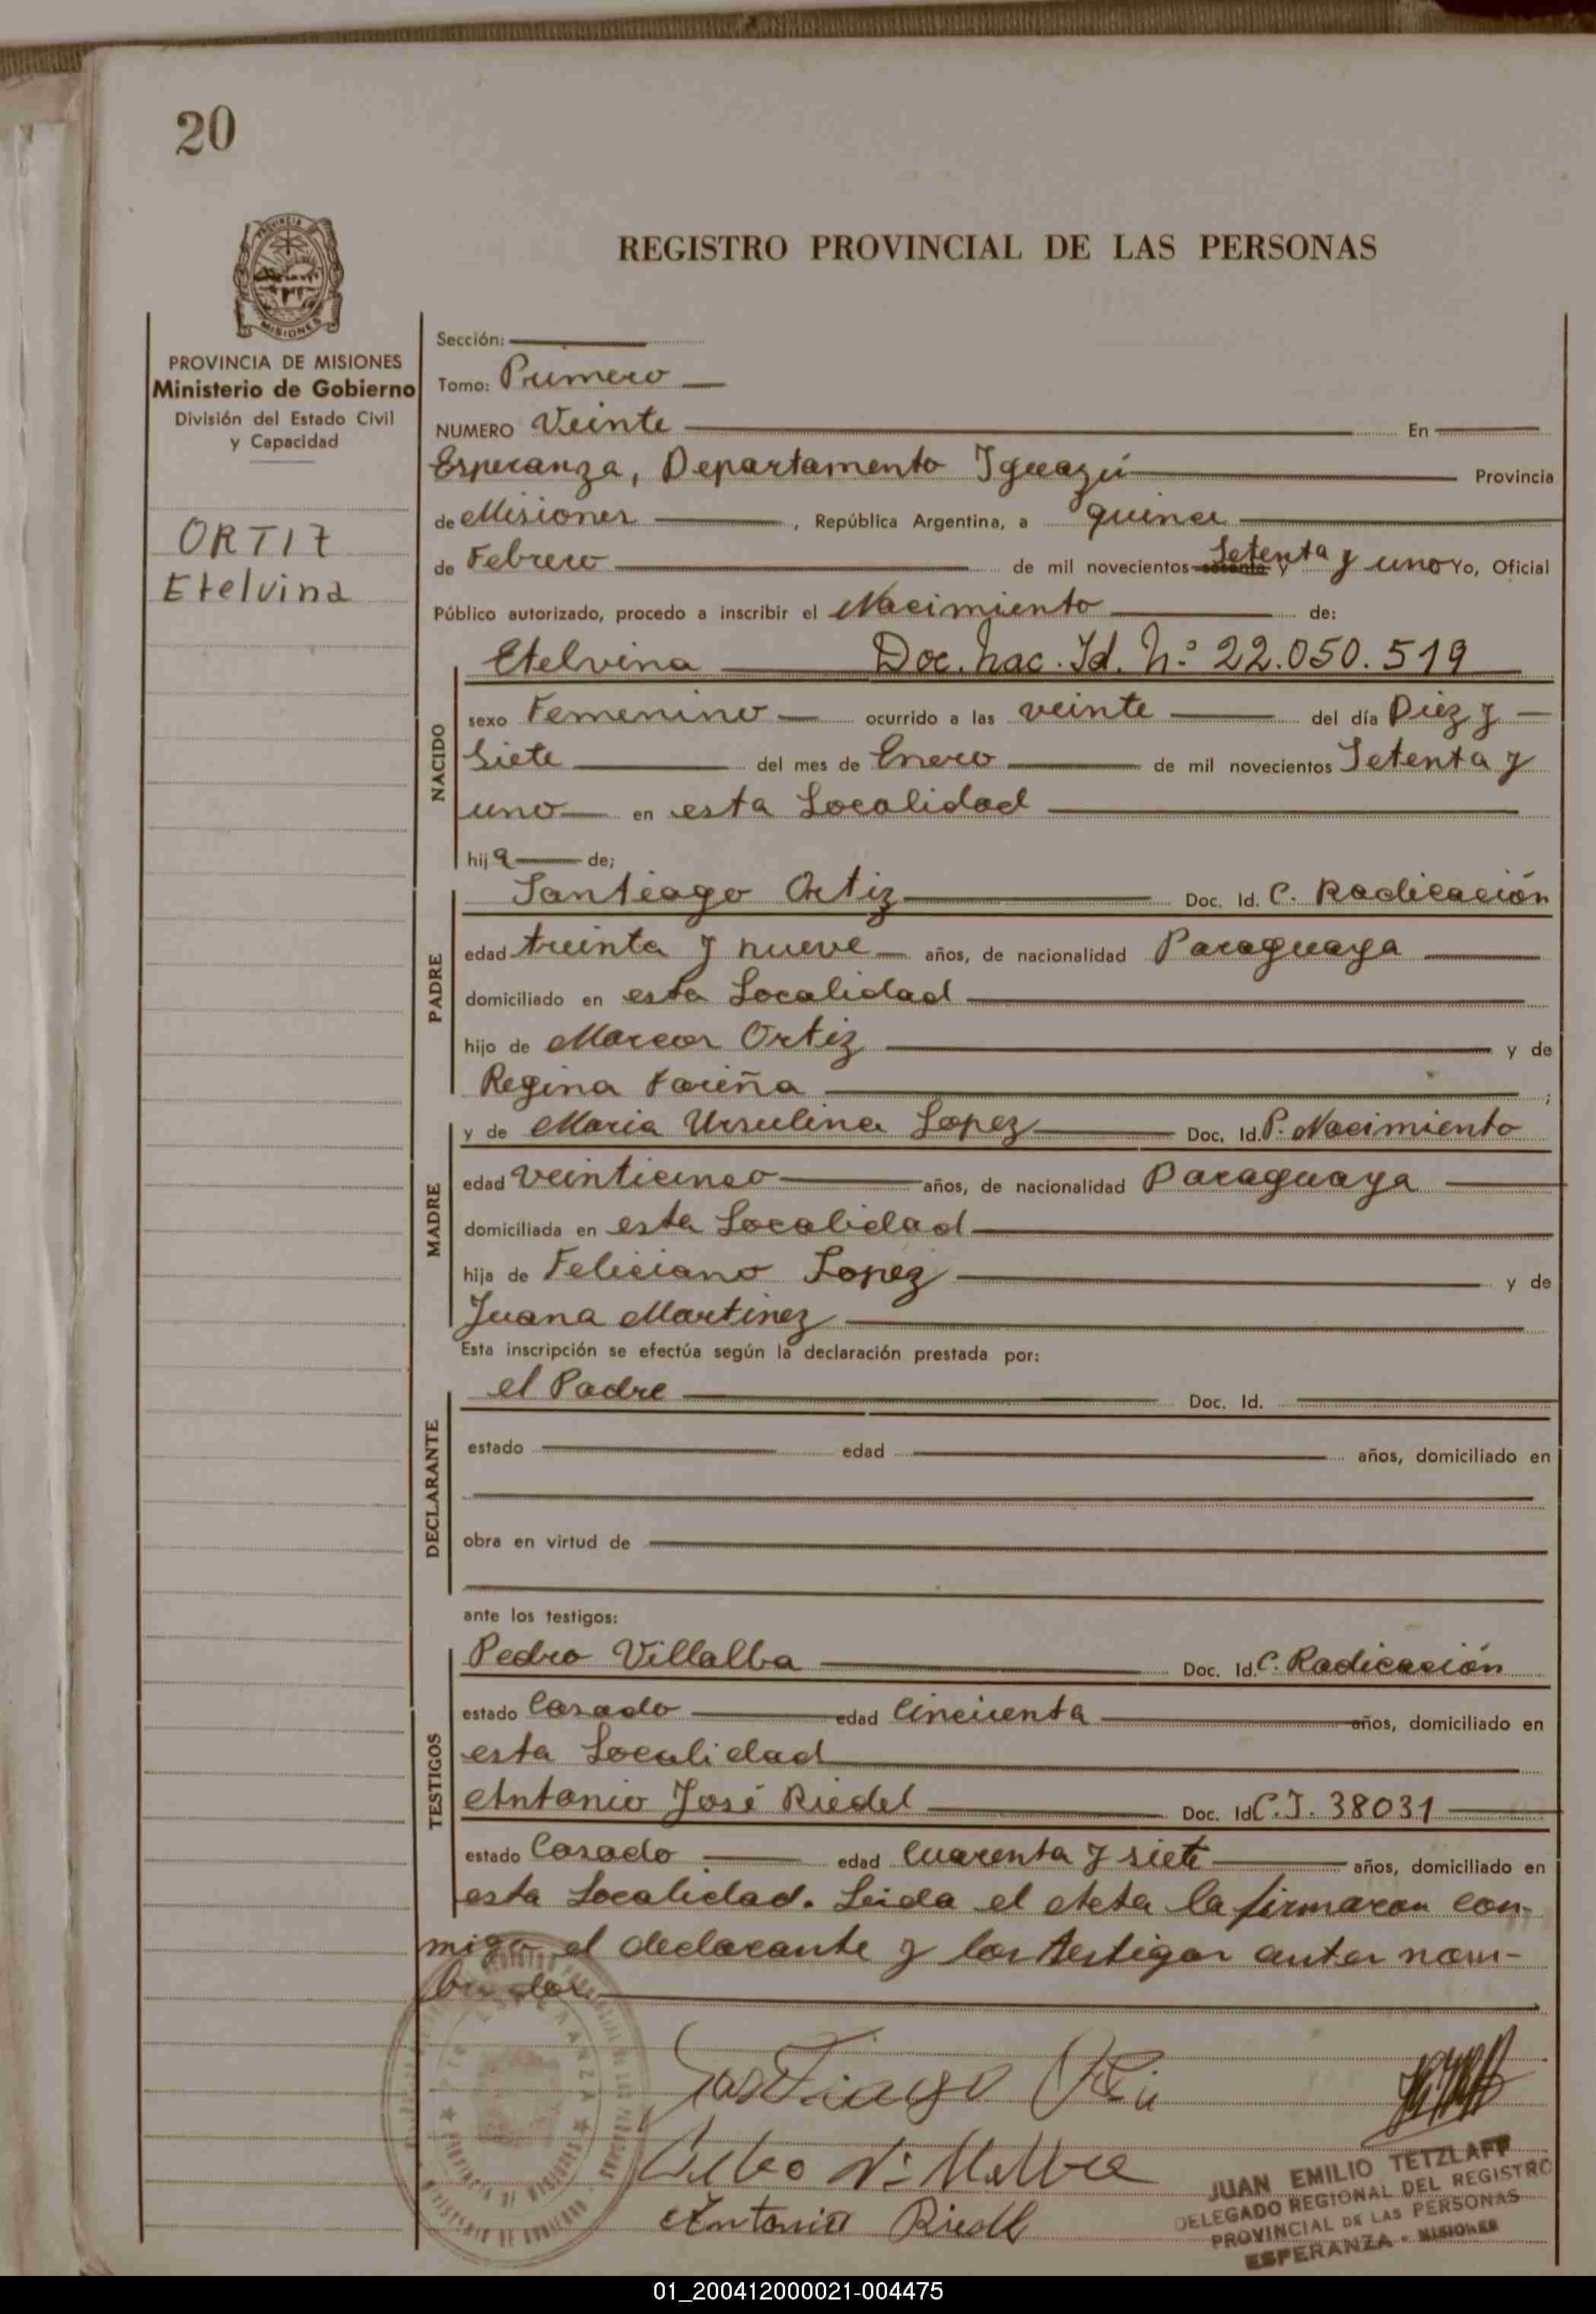 20
REGISTRO PROVINCIAL DE LAS PERSONAS
MISIONES
PROVINCIA DE MISIONES
Ministerio de Gobierno
División del Estado Civil
y Capacidad
ORTIZ
Etelvina
Sección:
Tomo: Primero
NUMERO Veinte En
Esperanza, Departamento Iguazú Provincia
de Misiones, República Argentina, a quince
de Febrero de mil novecientos sesenta y Setenta y uno Yo, Oficial
Público autorizado, procedo a inscribir el Nacimiento de:
NACIDO
Etelvina Doc. Nac. Id. Nº 22.050.519
sexo Femenino ocurrido a las veinte del día Diez y
Siete del mes de Enero de mil novecientos Setenta y
uno en esta Localidad
hija de;
PADRE
Santiago Ortiz Doc. Id. C. Radicación
edad treinta y nueve años, de nacionalidad Paraguaya
domiciliado en esta Localidad
hijo de Marcos Ortiz y de
Regina Fariña ;
MADRE
y de Maria Ursulina Lopez Doc. Id. P. Nacimiento
edad veinticinco años, de nacionalidad Paraguaya
domiciliada en esta Localidad
hija de Feliciano Lopez y de
Juana Martinez
Esta inscripción se efectúa según la declaración prestada por:
DECLARANTE
el Padre Doc. Id.
estado edad años, domiciliado en
obra en virtud de
ante los testigos:
TESTIGOS
Pedro Villalba Doc. Id. C. Radicación
estado Casado edad Cincuenta años, domiciliado en
esta Localidad
Antonio José Riedel Doc. Id C.I. 38031
estado Casado edad Cuarenta y siete años, domiciliado en
esta Localidad. Leida el Acta la firmaron con-
migo el declarante y los testigos antes nom-
brados.
Santiago
Antonio Riedl
JUAN EMILIO TETZLAFF
DELEGADO REGIONAL DEL REGISTRO
PROVINCIAL DE LAS PERSONAS
ESPERANZA - MISIONES
01_200412000021-004475